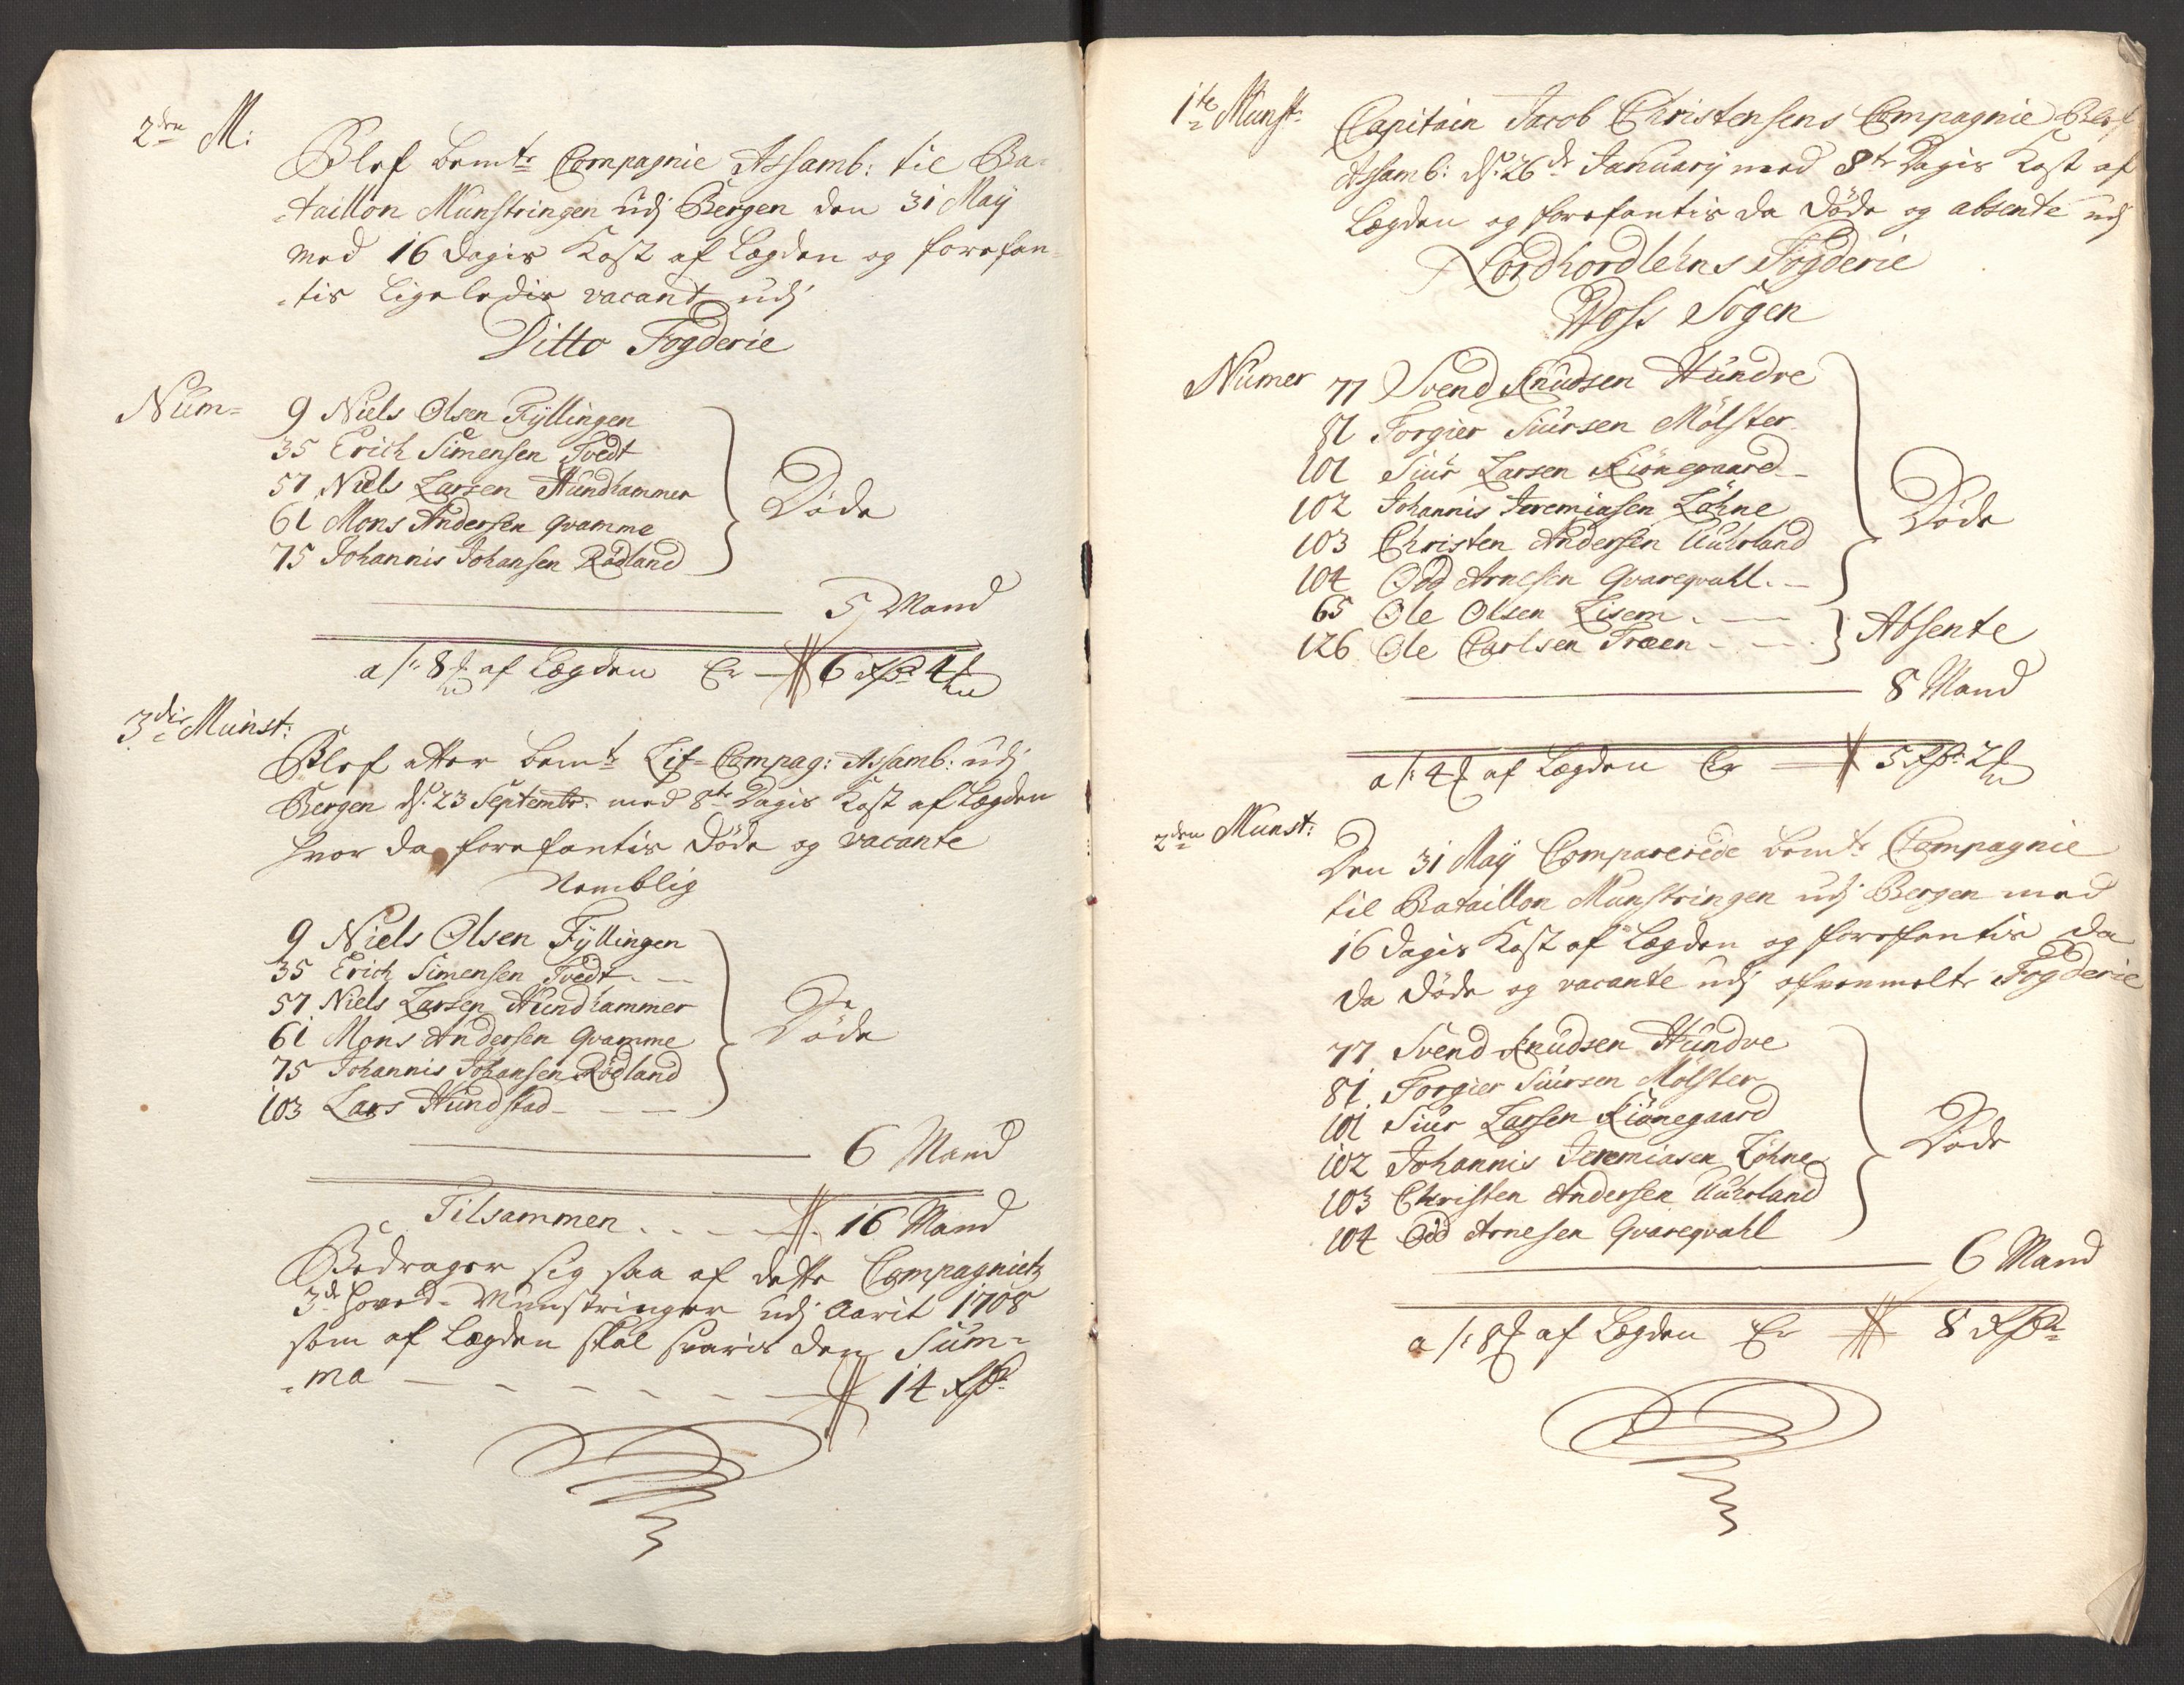 2den M:
Blef bemte Compagnie Assamb: til Ba-
-taillon Munstringen udj Bergen den 31 Maij
med 16 Dagis Kost af Lægden og forefan-
-tis ligeledis vacant udj
Ditto Fogderie
Num- 9 Niels Olsen Fyllingen
35 Erich Simensen Tvedt
57 Niels Larsen Hundhammer
61 Mons Andersen Qvamme
75 Johannis Johansen Rødland
Døde
5 Mand
a 1: 8 af Lægden Er 6 Rdr 4
3die Munst:
Blef atter bemt Lif-Compag: Assamb: udj
Bergen ds: 23 Septembr: med 8te Dagis Kost af Lægden
hvor da forefantis døde og vacante
Nemblig
9 Niels Olsen Fyllingen
35 Erich Simensen Tvedt
57 Niels Larsen Hundhammer
61 Mons Andersen Qvamme
75 Johannis Johansen Rødland
103 Lars Hundstad
Døde
6 Mand
Tilsammen 16 Mand
Bedrager sig saa af dette Compagnietz
3de Hoved-Munstringer udj Aarit 1708
som af Lægden skal svaris den Sum-
-ma 14 Rdr
1te Munst:
Capitain Jacob Christensens Compagnie Blef
Assamb: ds: 26de Januarij med 8te Dagis Kost af
Lægden og forefantis da døde og absente udj
Nordhordlehns Fogderie
Woss Sogen
Numer 77 Svend Knudsen Hundve
81 Torgier Siursen Mølster
101 Siur Larsen Kiønegaard
102 Johannis Jeremiasen Løhne
103 Christen Andersen Uuhrland
104 Odd Arnesen Qvareqvahl
Døde
65 Ole Olsen Lisem
126 Ole Carlsen Træen
Absente
8 Mand
a 1: 4 af Lægden Er 5 Rdr: 2
2den Munst:
Den 31 Maij Comparerede bemte Compagnie
til Bataillon Munstringen udj Bergen med
16 dagis Kost af Lægden og forefantis da
da døde og vacante udj ofvenmelte Fogderie
77 Svend Knudsen Hundve
81 Torgier Siursen Mølster
101 Siur Larsen Kiønegaard
102 Johannis Jeremiasen Løhne
103 Christen Andersen Uuhrland
104 Odd Arnesen Qvareqvahl
Døde
6 Mand
a 1: 8 af Lægden Er 8 Rdr